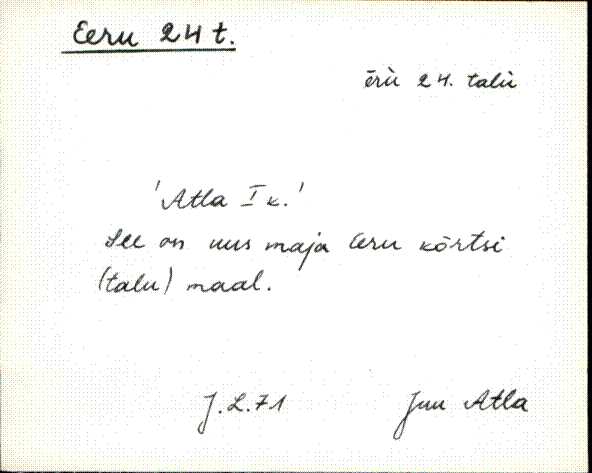 Eeru 24 t.
ērù 24. talù
'Atla I k.'
See on uus maja Eeru kõrtsi
(talu) maal.
J.L.71 Juu Atla